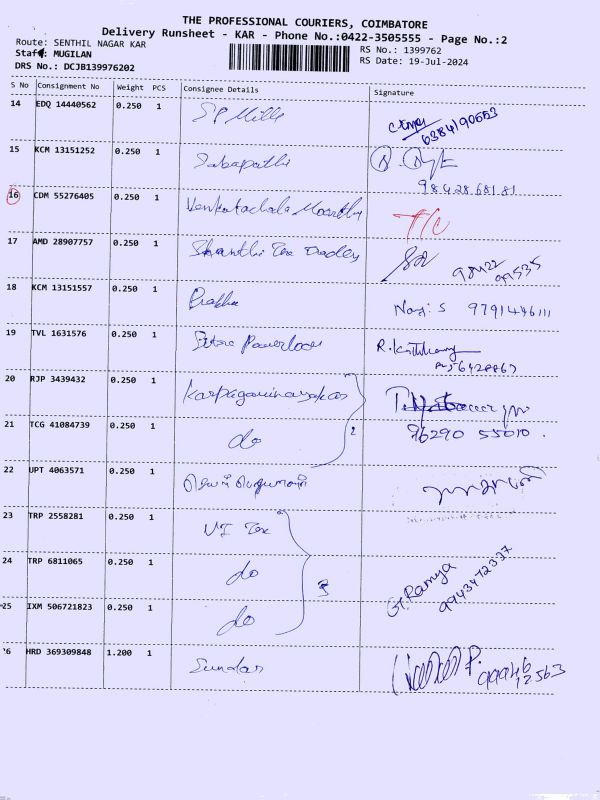 THE PROFESSIONAL COURIERS, COIMBATORE
Delivery Runsheet - KAR - Phone No.:0422-3505555 - Page No.:2
Route: SENTHIL NAGAR KAR
RS No.: 1399762
Staff: MUGILAN
RS Date: 19-Jul-2024
DRS No.: DCJB139976202
S No Consignment No Weight PCS Consignee Details Signature
14 EDQ 14440562 0.250 1 S P Mills
6384190653
15 KCM 13151252 0.250 1 Sabapathi
98428 68181
16 CDM 55276405 0.250 1 Venkatachala Moorthy T/C
17 AMD 28907757 0.250 1 Shanthi Tex
98422
18 KCM 13151557 0.250 1 Prabhu 9791446111
19 TVL 1631576 0.250 1 Powerloom
20 RJP 3439432 0.250 1 Karpagavinayakar
21 TCG 41084739 0.250 1 do 2 96290 55010
22 UPT 4063571 0.250 1
23 TRP 2558281 0.250 1 VI Tex
24 TRP 6811065 0.250 1 do 3 G. Ramya
9943472337
25 IXM 506721823 0.250 1 do
26 HRD 369309848 1.200 1 Sundar P. 99946
12563